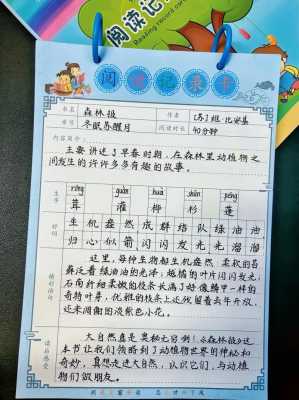 阅读记
Reading record
阅读记录卡
书名 森林报 作者 [苏]维·比安基
章节 冬眠苏醒月 阅读时长 40分钟
内容简介:
主要讲述了早春时期,在森林里动植物之
间发生的许许多多有趣的故事。
生字
róng guàn huà shān péng
茸 灌 桦 杉 蓬
好词
生机盎然 成群结队 绿油油
归心似箭 闪闪发光 光溜溜
精彩语句
这里,每种生物都生机盎然,柔软的苔
藓泛着绿油油的光泽;越橘的叶片闪闪发光;
石南新细柔嫩的枝条长满了好像鳞子一样的
奇特叶芽,优雅的枝条上还残留着去年开放,
还未凋谢的淡紫色小花。
读后感受
大自然真是奥秘无穷啊!《森林报》这
本书让我们领略到了动植物世界的神秘和
奇妙,真想走进大自然,认识它们,与动植
物们做朋友。